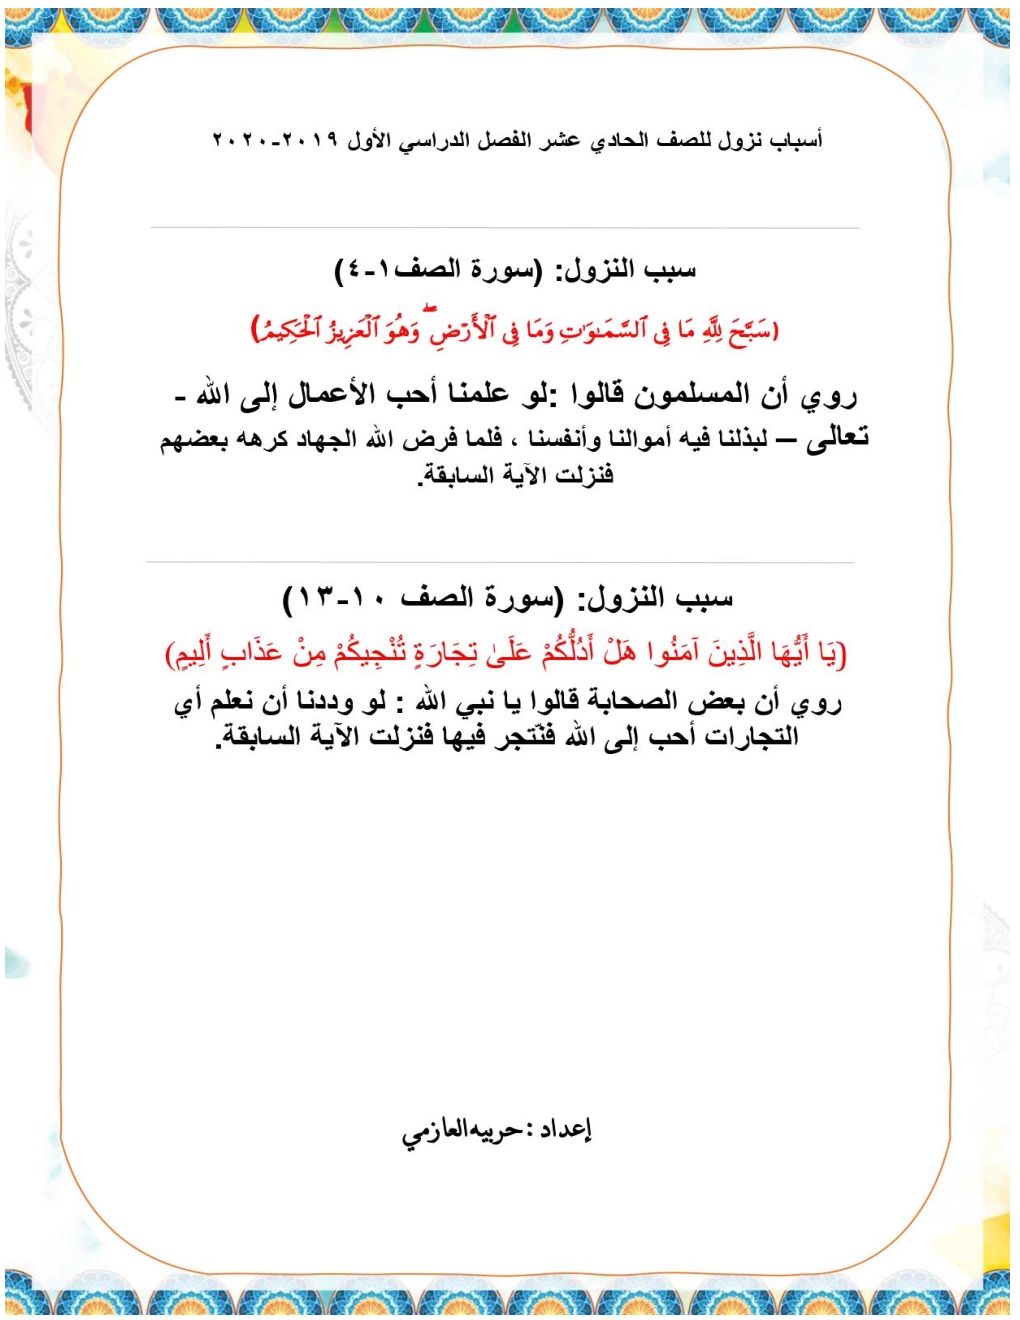 أسباب نزول للصف الحادي عشر الفصل الدراسي الأول ٢٠١٩-٢٠٢٠
سبب النزول: (سورة الصف١-٤)
(سَبَّحَ لِلَّهِ مَا فِي ٱلسَّمَـٰوَٰتِ وَمَا فِي ٱلْأَرْضِ ۖ وَهُوَ ٱلْعَزِيزُ ٱلْحَكِيمُ)
روي أن المسلمون قالوا :لو علمنا أحب الأعمال إلى الله -
تعالى – لبذلنا فيه أموالنا وأنفسنا ، فلما فرض الله الجهاد كرهه بعضهم
فنزلت الآية السابقة.
سبب النزول: (سورة الصف ١٠-١٣)
(يَا أَيُّهَا الَّذِينَ آمَنُوا هَلْ أَدُلُّكُمْ عَلَىٰ تِجَارَةٍ تُنْجِيكُمْ مِنْ عَذَابٍ أَلِيمٍ)
روي أن بعض الصحابة قالوا يا نبي الله : لو وددنا أن نعلم أي
التجارات أحب إلى الله فنّتجر فيها فنزلت الآية السابقة.
إعداد :حربيه العازمي